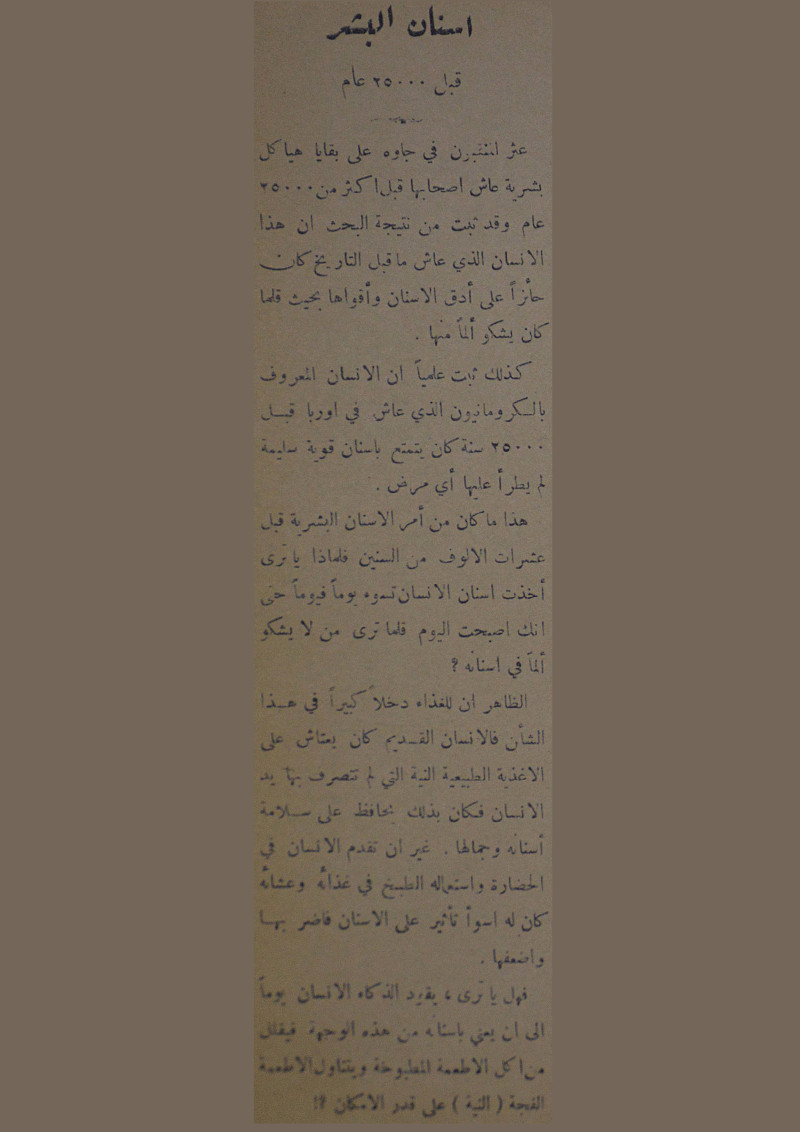 اسنان البشر
قبل ٢٥٠٠٠ عام
عثر المنقبون في جاوه على بقايا هياكل
بشرية عاش اصحابها قبل اكثر من ٢٥٠٠٠
عام وقد ثبت من نتيجة البحث ان هذا
الانسان الذي عاش ما قبل التاريخ كان
حائزاً على أدق الاسنان وأقواها بحيث قلما
كان يشكو ألماً منها .
كذلك ثبت علمياً ان الانسان المعروف
بالكرومانيون الذي عاش في اوربا قبل
٢٥٠٠٠ سنة كان يتمتع باسنان قوية سليمة
لم يطرأ عليها أي مرض .
هذا ما كان من أمر الاسنان البشرية قبل
عشرات الالوف من السنين فلماذا يا ترى
أخذت اسنان الانسان تسوء يوماً فيوماً حتى
انك اصبحت اليوم قلما ترى من لا يشكو
ألماً في اسنانه ؟
الظاهر ان للغذاء دخلاً كبيراً في هذا
الشأن فالانسان القديم كان يعتاش على
الاغذية الطبيعية النية التي لم تتصرف بها يد
الانسان فكان بذلك يحافظ على سلامة
أسنانه وجمالها . غير ان تقدم الانسان في
الحضارة واستعماله الطبخ في غذائه وعشائه
كان له اسوأ تأثير على الاسنان فاضر بها
واضعفها .
فهل يا ترى ، يقود الذكاء الانسان يوماً
الى ان يعني باسنانه من هذه الوجهة فيقلل
من اكل الاطعمة المطبوخة ويتناول الاطعمة
الفجة ( النية ) على قدر الامكان ؟!